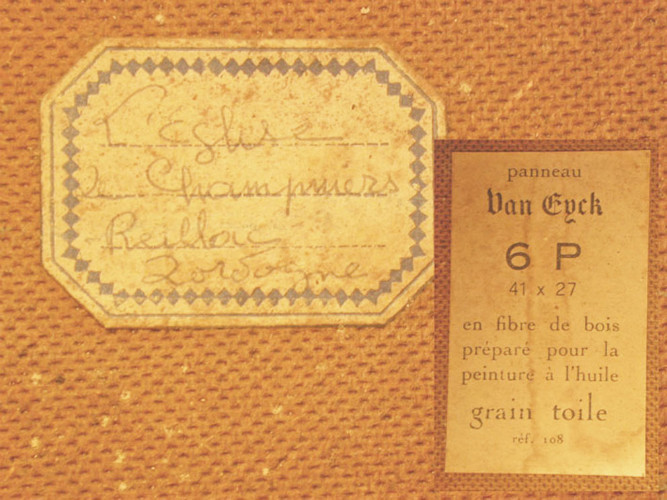 L'Eglise
de Champniers
Reillac
Dordogne
panneau
Van Eyck
6 P
41 x 27
en fibre de bois
préparé pour la
peinture à l'huile
grain toile
réf. 108